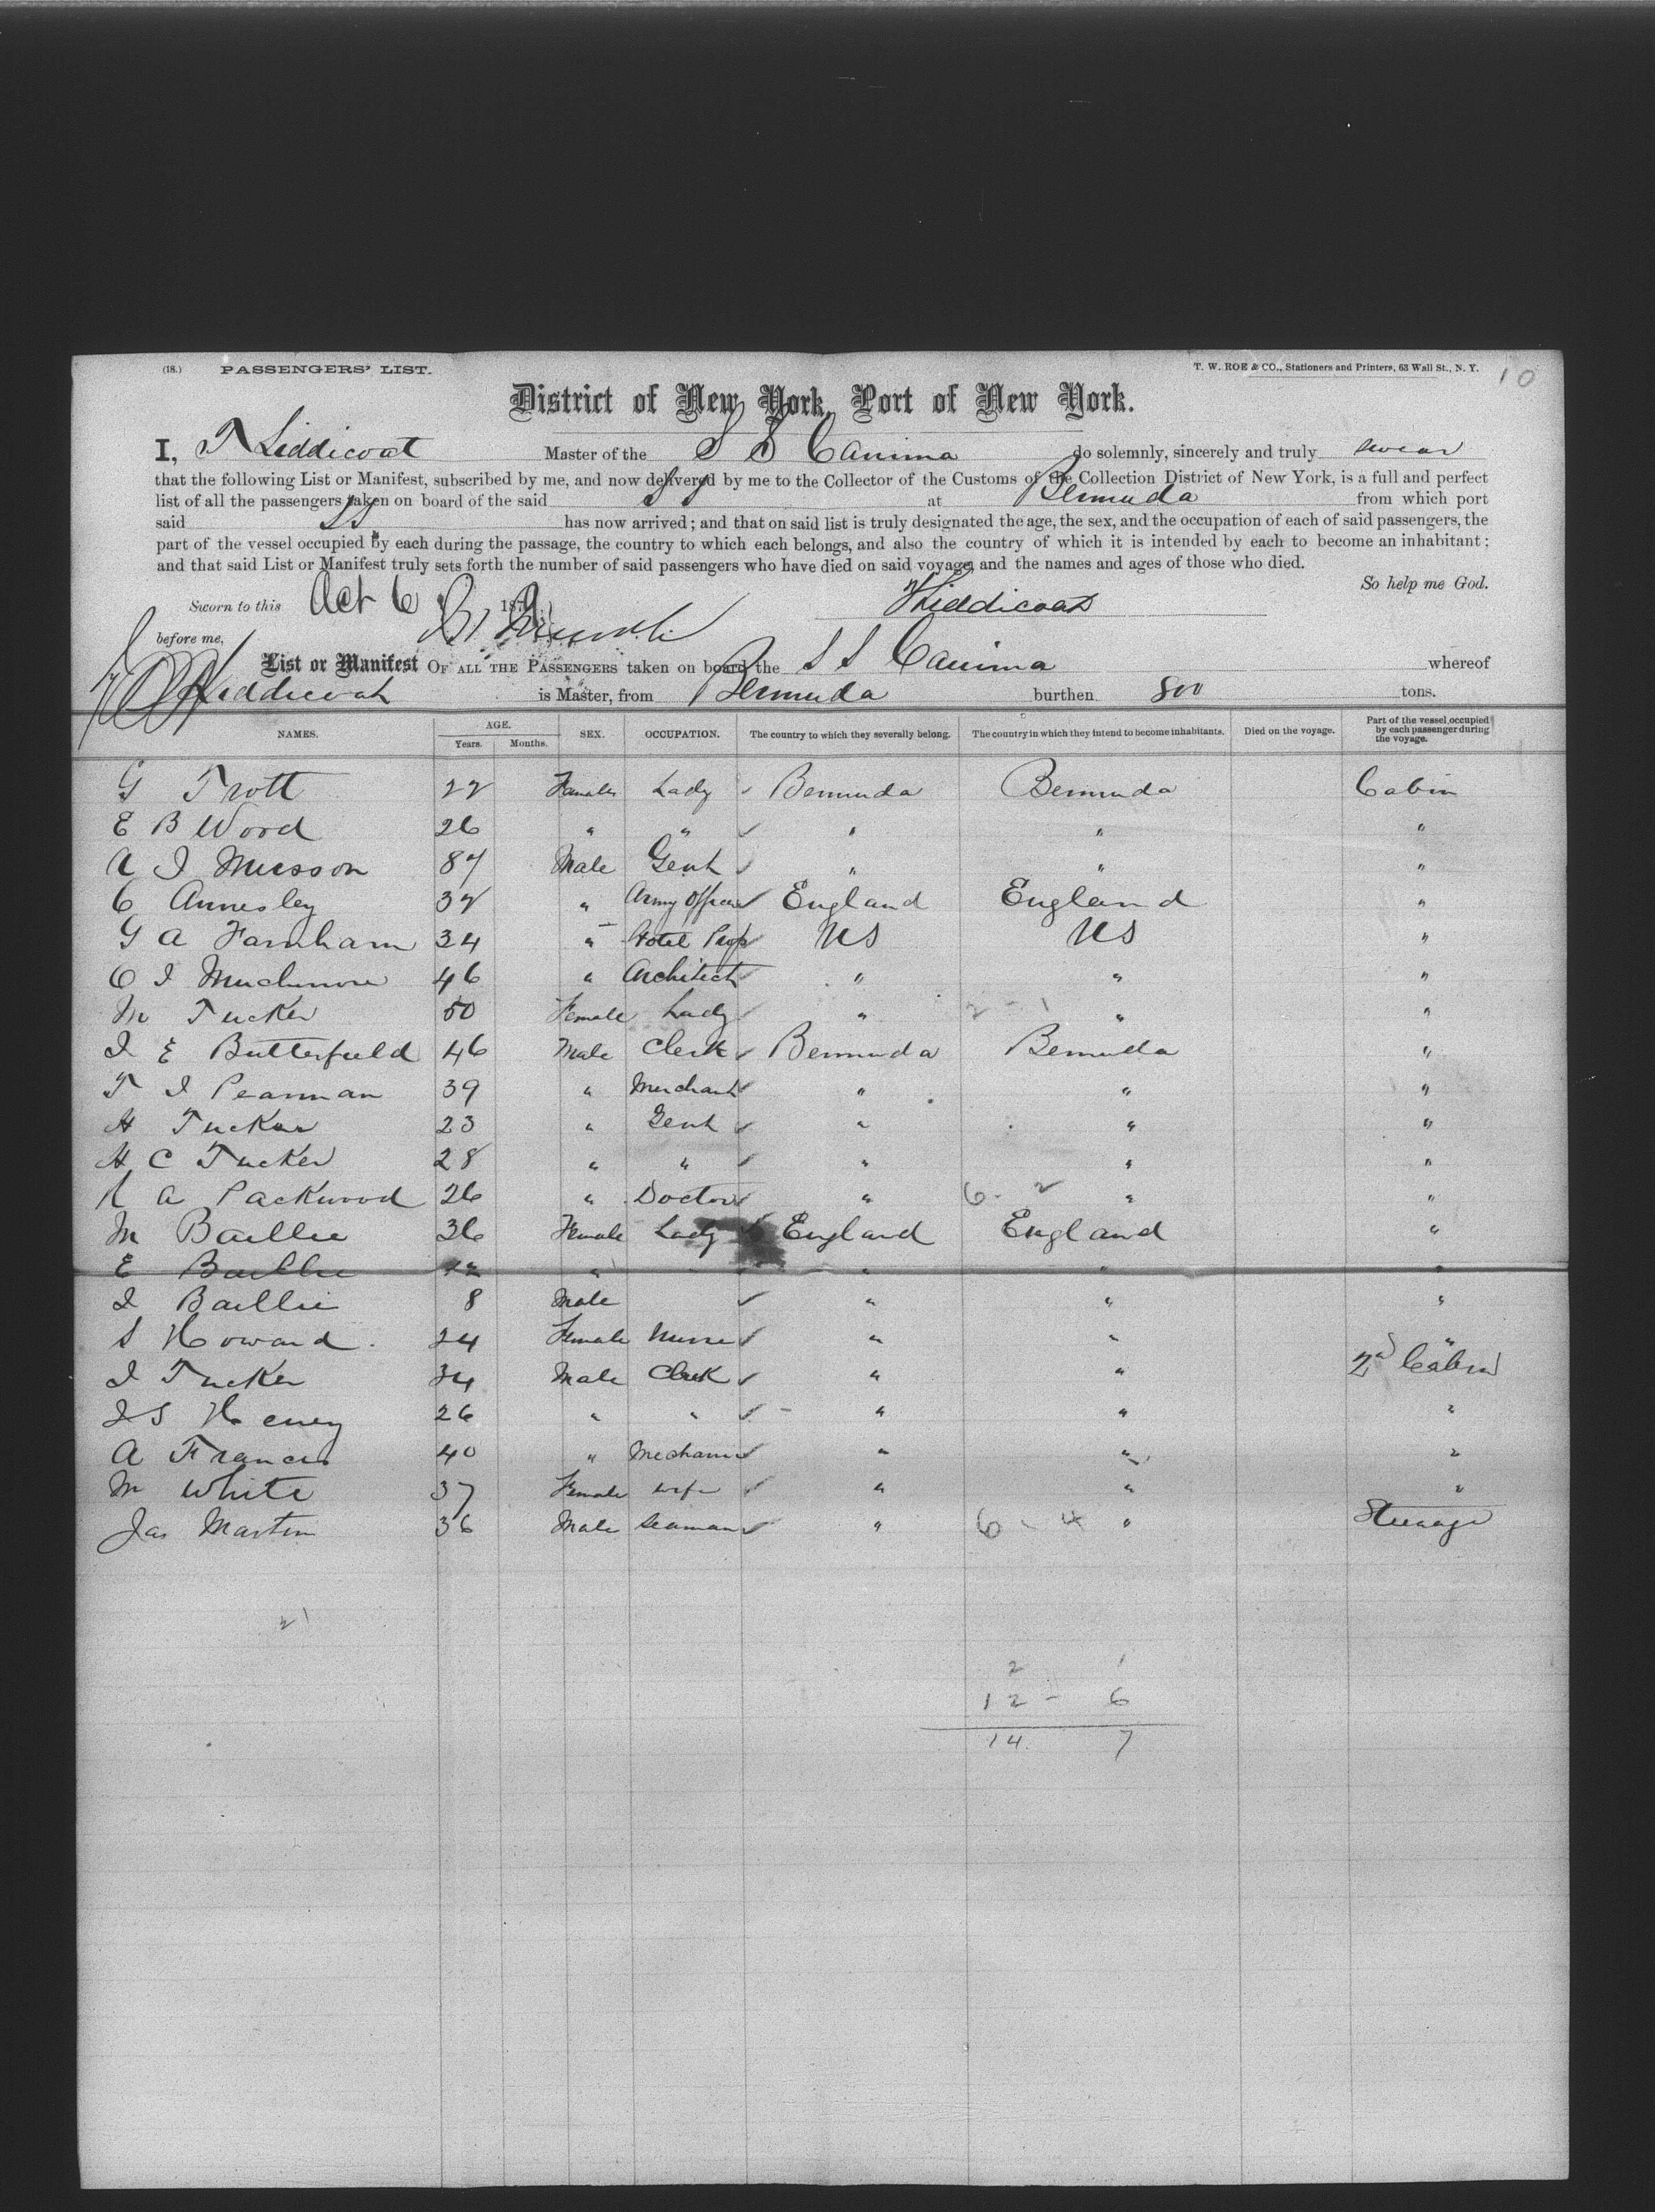 (18.) PASSENGERS' LIST. T. W. ROE & CO., Stationers and Printers, 63 Wall St., N. Y. 10
District of New York, Port of New York.
I, T Liddicoat Master of the S S Canima do solemnly, sincerely and truly swear
that the following List or Manifest, subscribed by me, and now delivered by me to the Collector of the Customs of the Collection District of New York, is a full and perfect
list of all the passengers taken on board of the said SS at Bermuda from which port
said SS has now arrived; and that on said list is truly designated the age, the sex, and the occupation of each of said passengers, the
part of the vessel occupied by each during the passage, the country to which each belongs, and also the country of which it is intended by each to become an inhabitant;
and that said List or Manifest truly sets forth the number of said passengers who have died on said voyage, and the names and ages of those who died.
So help me God.
Sworn to this Oct 6 1879 T Liddicoat
before me,
List or Manifest OF ALL THE PASSENGERS taken on board the S S Canima whereof
T Liddicoat is Master, from Bermuda burthen 800 tons.
NAMES. AGE. Years. Months. SEX. OCCUPATION. The country to which they severally belong. The country in which they intend to become inhabitants. Died on the voyage. Part of the vessel occupied by each passenger during the voyage.
G Trott 22 Female Lady Bermuda Bermuda Cabin
E B Wood 26 " " " " "
A J Musson 87 Male Gent " " "
C Annesley 32 " Army Officer England England "
G A Farnham 34 " Hotel Prop US US "
C I Muchmore 46 " Architect " " "
M Tucker 50 Female Lady " 2 - 1 " "
J E Butterfield 46 Male Clerk Bermuda Bermuda "
T J Pearman 39 " Merchant " " "
H Tucker 23 " Gent " " "
H C Tucker 28 " " " " "
R A Packwood 26 " Doctor " 6 - 2 " "
M Baillie 36 Female Lady England England "
E Baillie 12 " " " "
J Baillie 8 Male " " "
S Howard 24 Female Nurse " " "
J Tucker 34 Male Clerk " " 2nd Cabin
J S Heney 26 " " " " "
A Francis 40 " Mechanic " " "
M White 37 Female wife " " "
Jas Martin 36 Male Seaman " 6 - 4 " Steerage
21
2 1
12 - 6
14 7